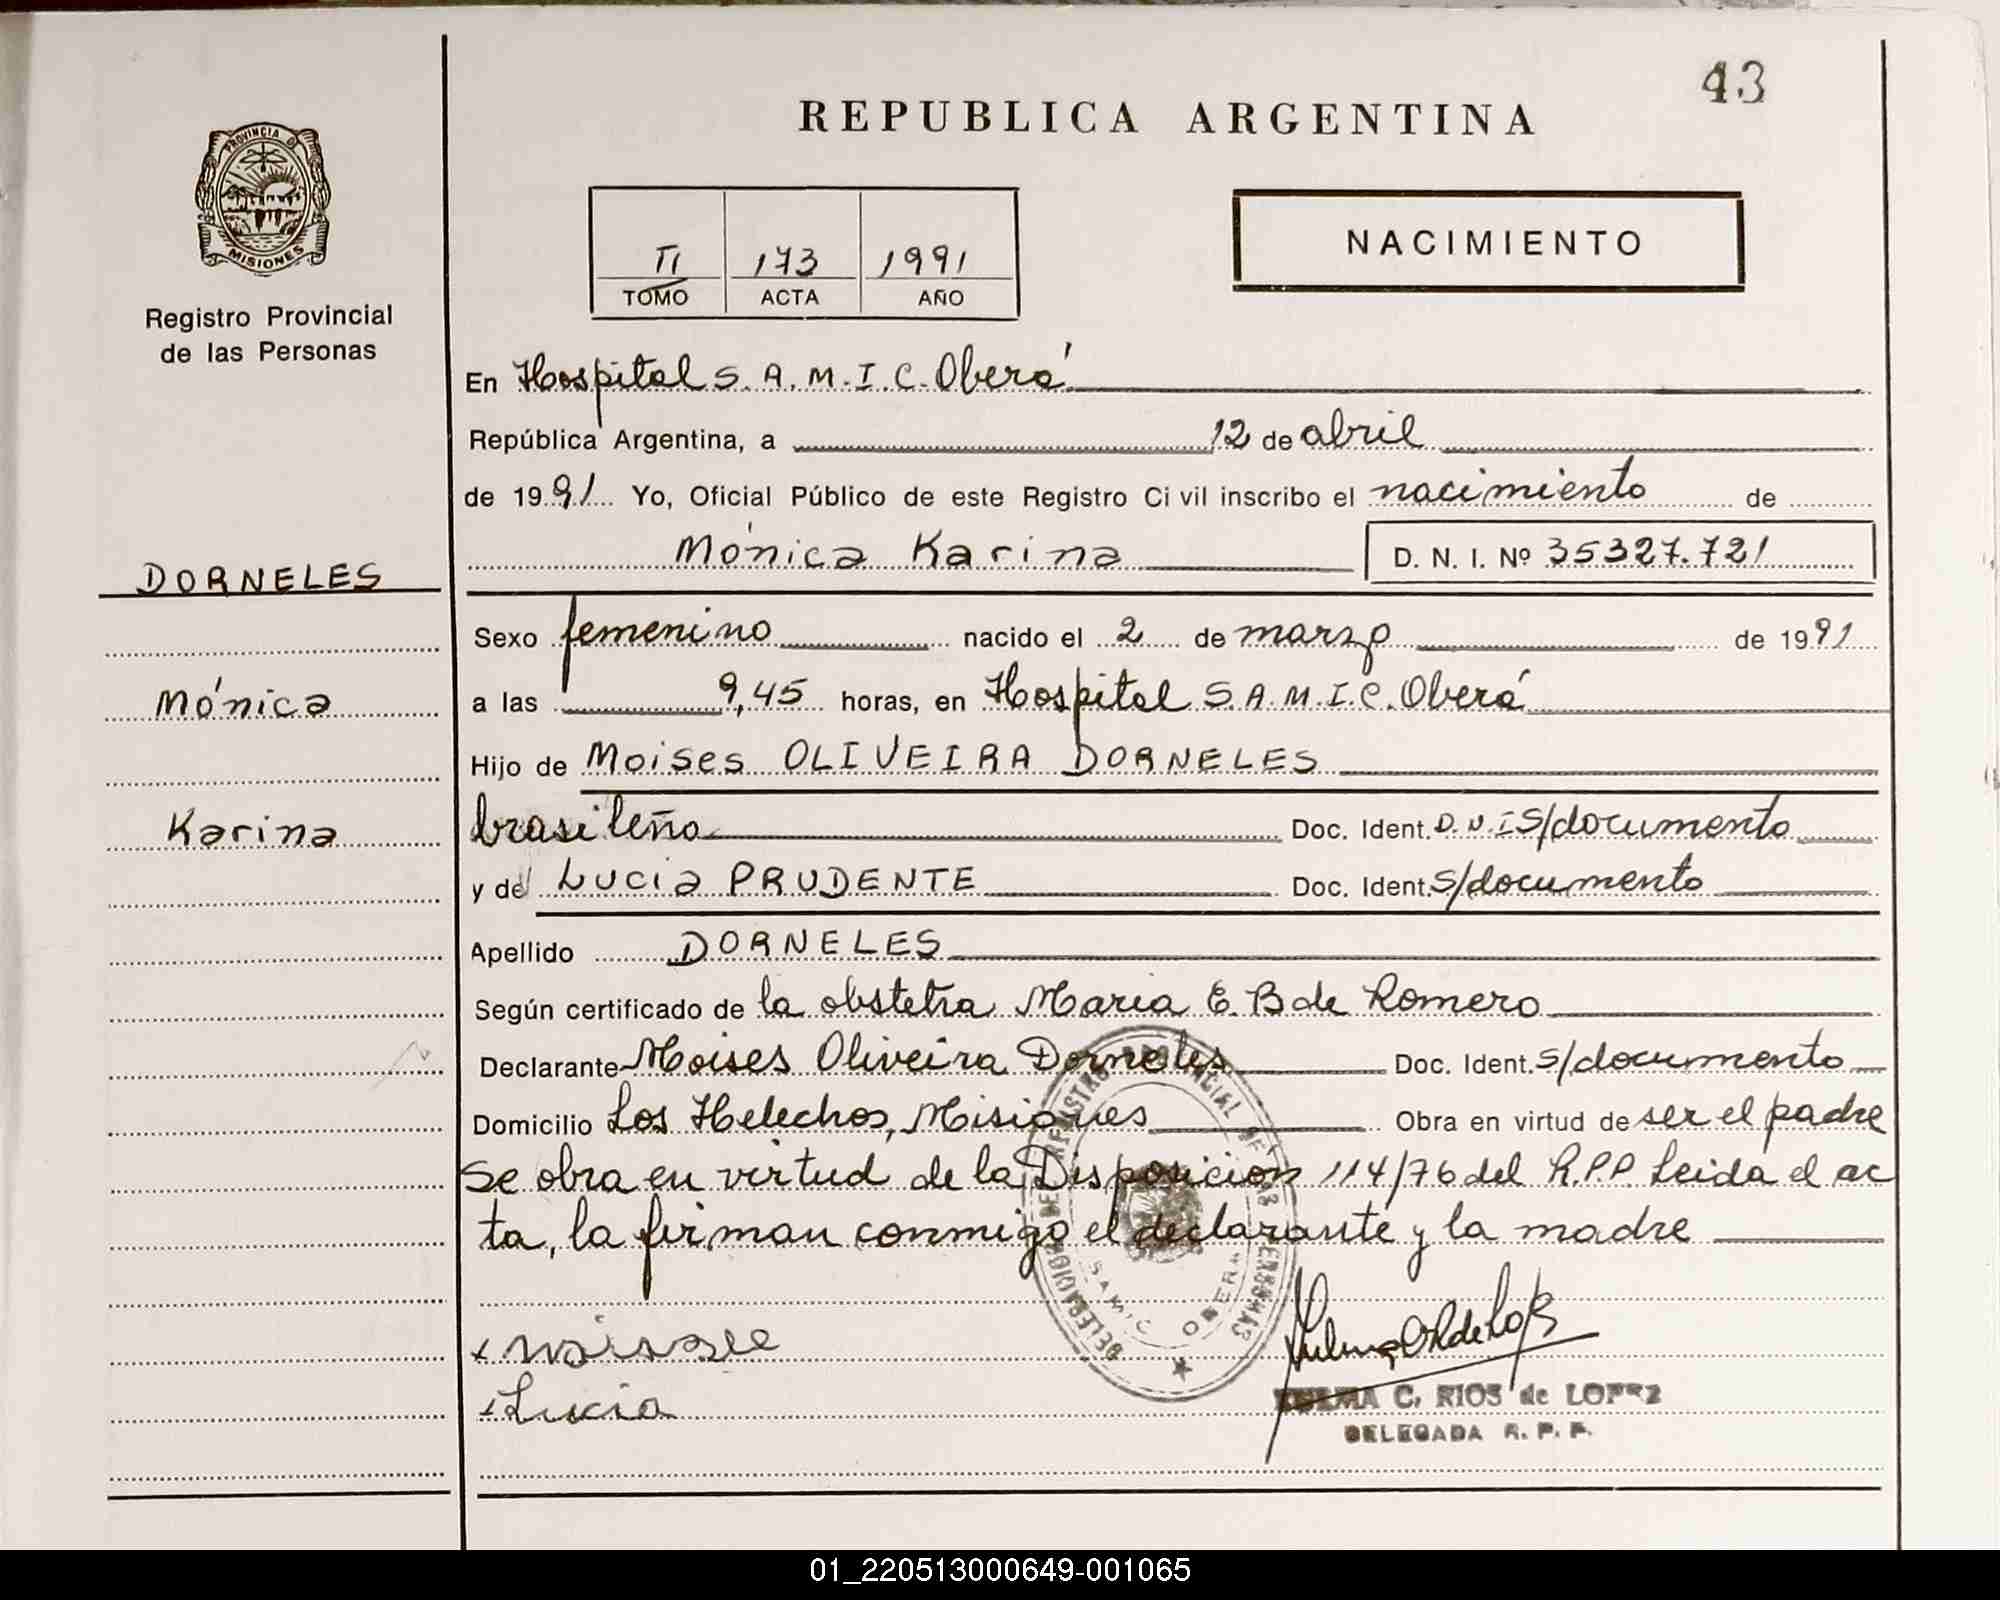 43
REPUBLICA ARGENTINA
PROVINCIA DE
MISIONES
Registro Provincial
de las Personas
TI 173 1991
TOMO ACTA AÑO
NACIMIENTO
En Hospital S.A.M.I.C. Oberá
República Argentina, a 12 de abril
de 1991 Yo, Oficial Público de este Registro Ci vil inscribo el nacimiento de
Mónica Karina D. N. I. Nº 35327.721
DORNELES
Mónica
Karina
Sexo femenino nacido el 2 de marzo de 1991
a las 9,45 horas, en Hospital S.A.M.I.C. Oberá
Hijo de Moises OLIVEIRA DORNELES
brasileño Doc. Ident. D.N.I S/documento
y de Lucia PRUDENTE Doc. Ident. S/documento
Apellido DORNELES
Según certificado de la obstetra Maria E. B de Romero
Declarante Moises Oliveira Dorneles Doc. Ident. S/documento
Domicilio Los Helechos, Misiones Obra en virtud de ser el padre
Se obra en virtud de la Disposicion 114/76 del R.P.P. Leida el ac
ta, la firman conmigo el declarante y la madre
DELEGACION DE REGISTRO PROVINCIAL DE LAS PERSONAS
SAMIC OBERA
x Lucia
C. RIOS de LOPEZ
DELEGADA R. P. P.
01_220513000649-001065